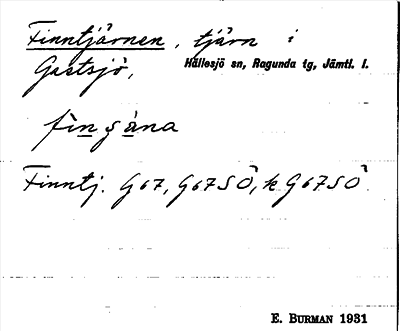 Finntjärnen, tjärn i
Gastsjö, Hällesjö sn, Ragunda tg, Jämtl. l.
fìnʂàna
Finntj. G67, G67SÖ, k G67SÖ
E. BURMAN 1931